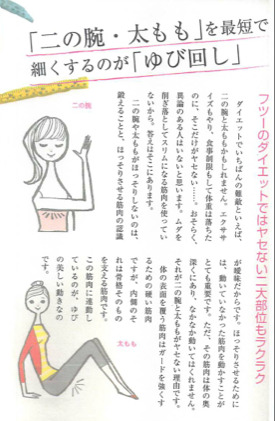 「二の腕・太もも」を最短で
細くするのが「ゆび回し」
フツーのダイエットではヤセない二大部位もラクラク
ダイエットでいちばんの難敵といえば、
二の腕と太ももかもしれません。エクササ
イズもやり、食事制限もして体重は落ちた
のに、そこだけがヤセない……。おそらく、
異論のある人はいないと思います。ムダを
削ぎ落としてスリムになる筋肉を使ってい
ないから。答えはそこにあります。
二の腕や太ももがほっそりしないのは、
鍛えることと、ほっそりさせる筋肉の認識
が曖昧だからです。ほっそりさせるために
は、動いていなかった筋肉を動かすことが
とても重要です。ただ、その筋肉は体の奥
深くにあり、なかなか動いてはくれません。
それが二の腕と太ももがヤセない理由です。
体の表面を覆う筋肉はガードを強くす
るための硬い筋肉
ですが、内側のそ
れは骨格そのもの
を支える筋肉です。
この筋肉に連動し
ているのが、ゆび
の美しい動きなの
です。
二の腕
太もも